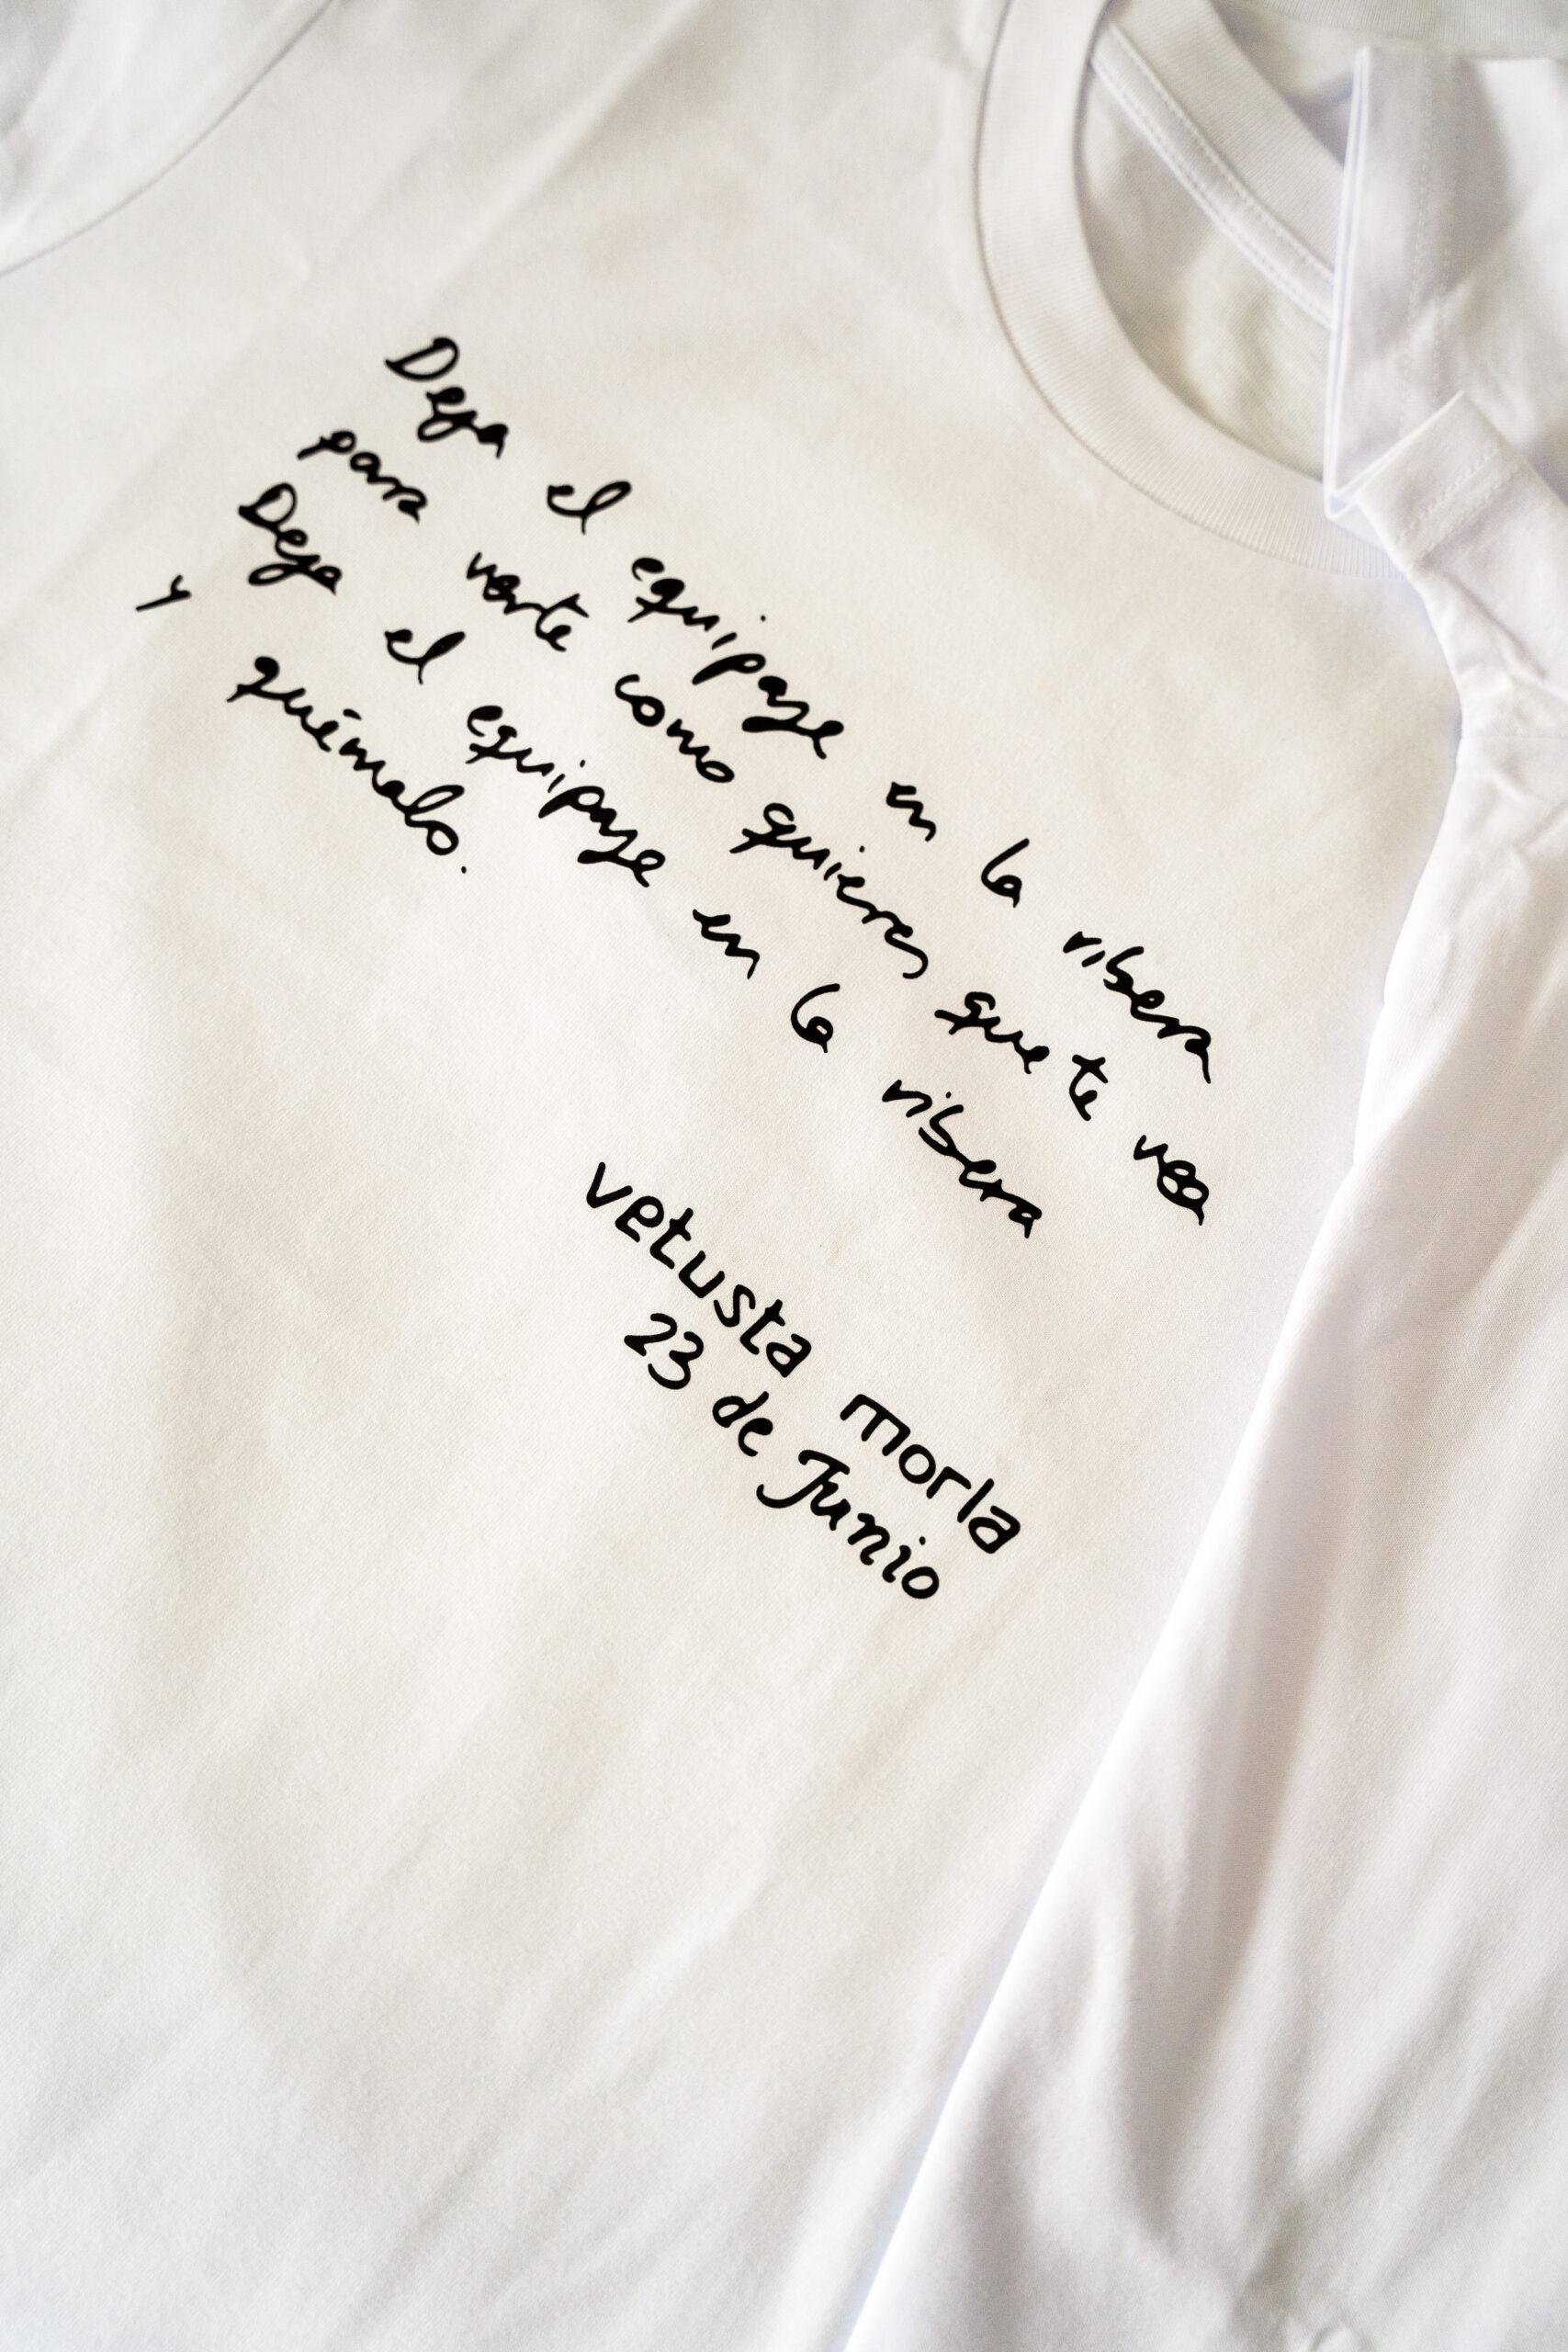 Deja el equipaje en la ribera
para verte como quieres que te vea
Deja el equipaje en la ribera
y quémalo.
vetusta morla
23 de Junio